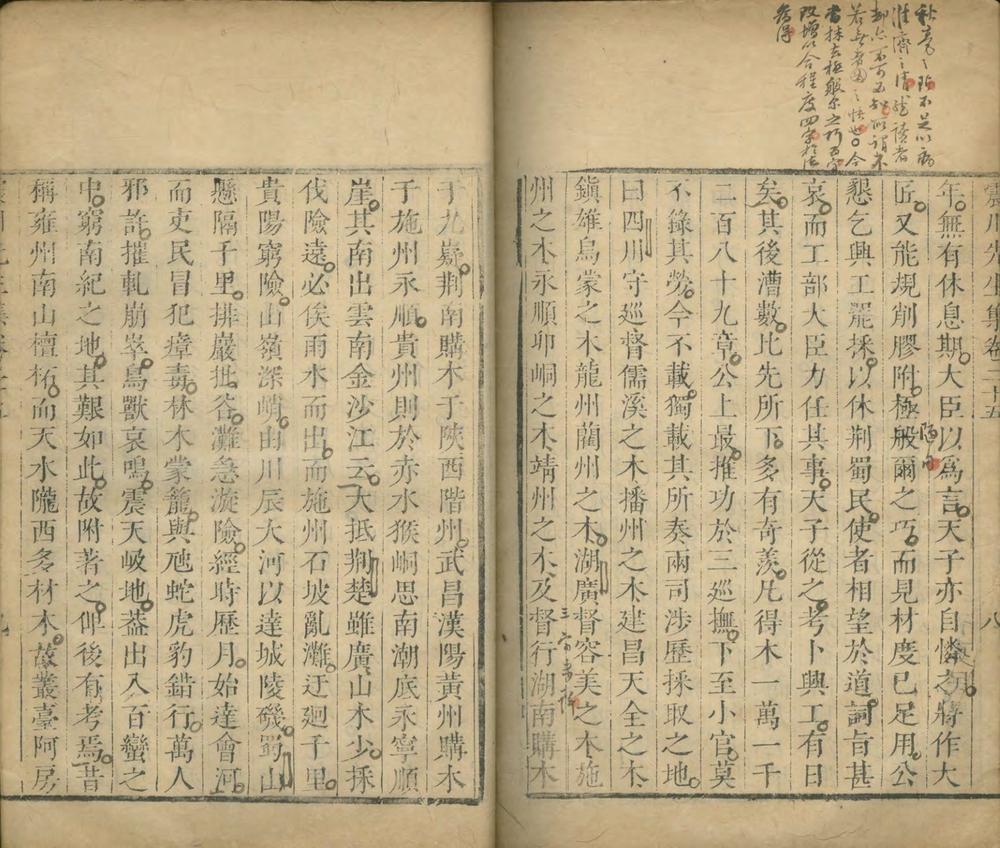 震川先生集卷二十五
八
年無有休息期大臣以為言天子亦自憐之將作大
匠又能規削膠附極般爾之巧而見材度已足用公
懇乞興工罷採以休荆蜀民使者相望於道詞旨甚
哀而工部大臣力任其事天子從之考卜興工有日
矣其後漕數比先所下多有奇羨凡得木一萬一千
二百八十九章公上最推功於三巡撫下至小官莫
不錄其勞今不載獨載其所奏兩司涉歷採取之地
曰四川守巡督儒溪之木播州之木建昌天全之木
鎮雄烏蒙之木龍州藺州之木湖廣督容美之木施
州之木永順卯峒之木靖州之木及督行湖南購木
于九嶷荆南購木于陝西階州武昌漢陽黃州購木
于施州永順貴州則於赤水猴峒思南潮底永寧順
崖其南出雲南金沙江云大抵荆楚雖廣山木少採
伐險遠必俟雨水而出而施州石坡亂灘迂迴千里
貴陽窮險山嶺深峭由川辰大河以達城陵磯蜀山
懸隔千里排巖批谷灘急漩險經時歷月始達會河
而吏民冒犯瘴毒林木蒙籠與虺蛇虎豹錯行萬人
邪許摧軋崩崒鳥獸哀鳴震天岋地蓋出入百蠻之
中窮南紀之地其艱如此故附著之俾後有考焉昔
稱雍州南山檀柘而天水隴西多材木故叢臺阿房
秋毫之玷不足以病
淮濟之清然讀者
却亦不可不知所謂不
若無者因之悟也今
當抹去極般爾之巧五字
改增以合程度四字於法
為得